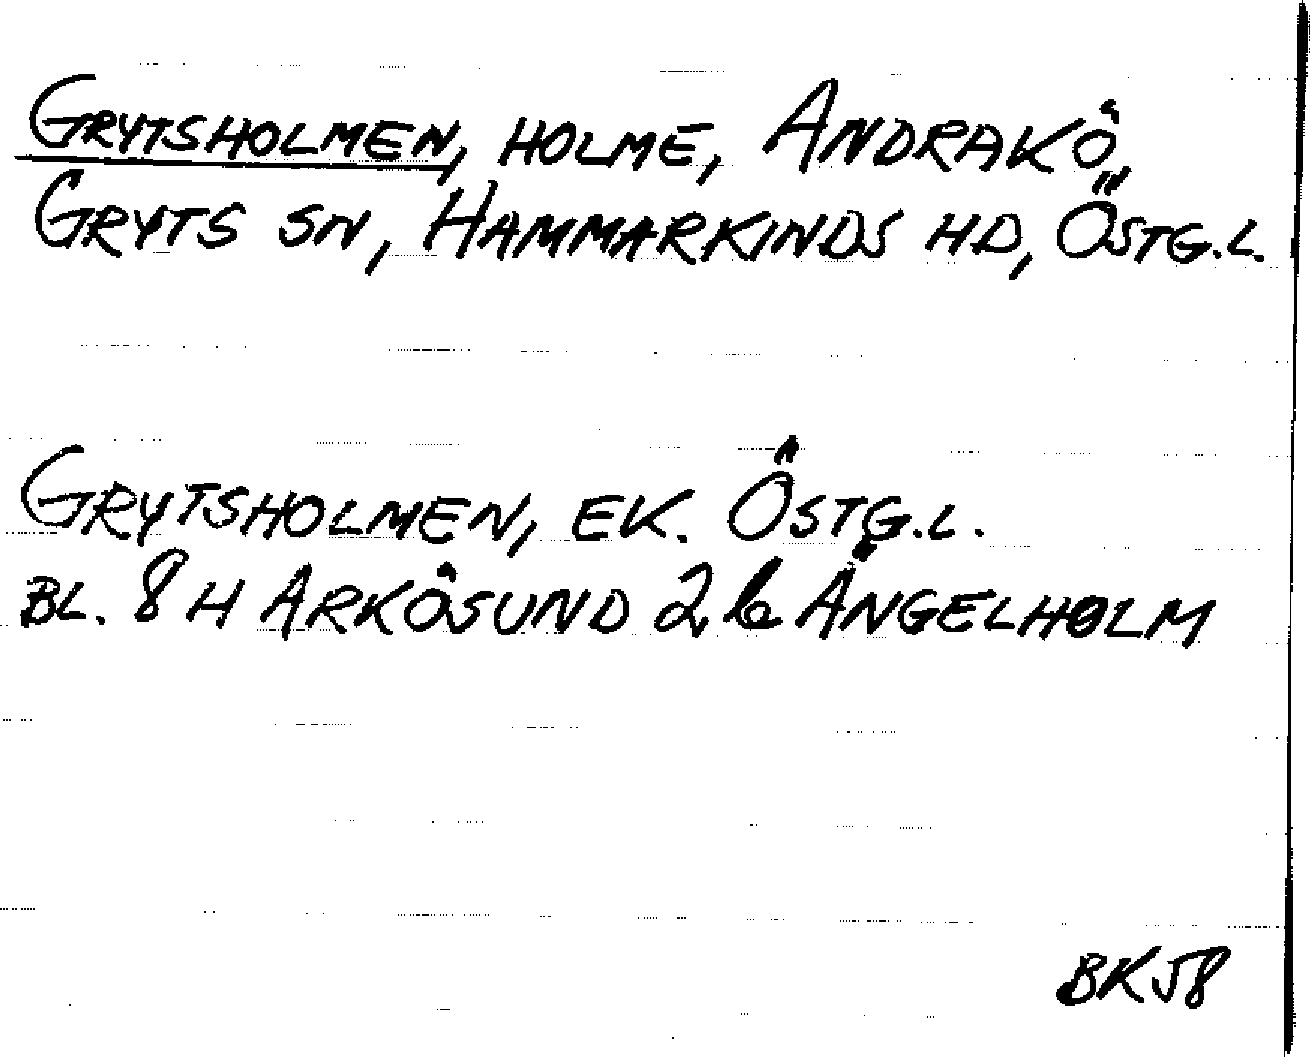 GRYTSHOLMEN, HOLME, ANDRAKÖ,
GRYTS SN, HAMMARKINDS HD, ÖSTG.L.
GRYTSHOLMEN, EK. ÖSTG.L.
BL. 8H ARKÖSUND 2b ÄNGELHOLM
BK58